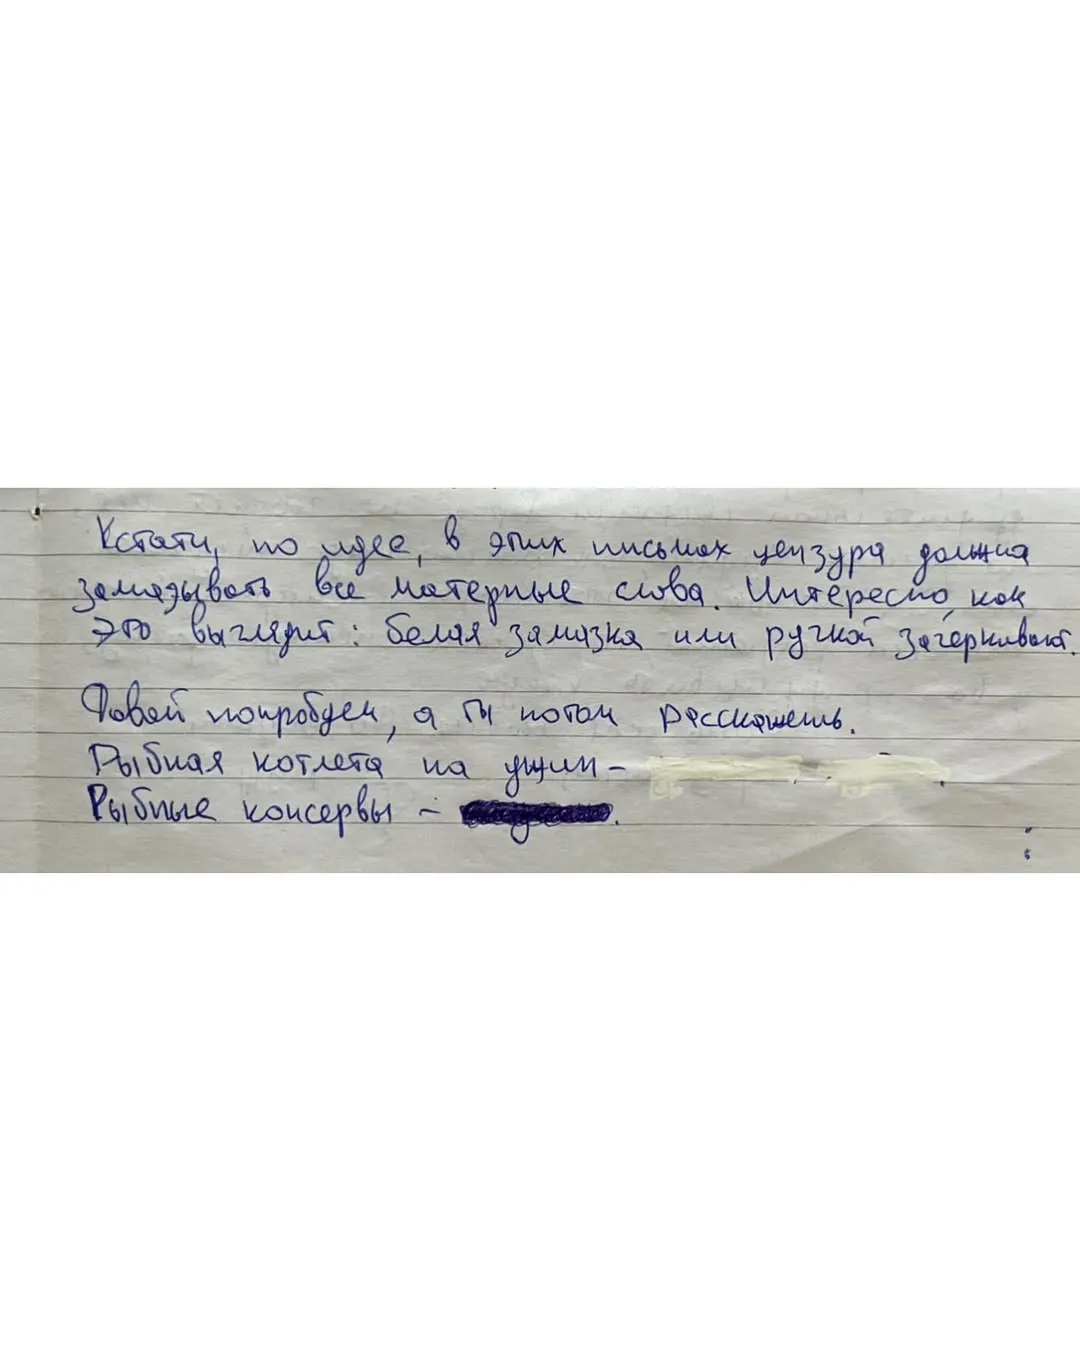 Кстати, по идее, в этих письмах цензура должна
замазывать все матерные слова. Интересно, как
это выглядит: белая замазка или ручкой зачеркивают.
Давай попробуем, а ты потом расскажешь.
Рыбная котлета на ужин -
Рыбные консервы - .